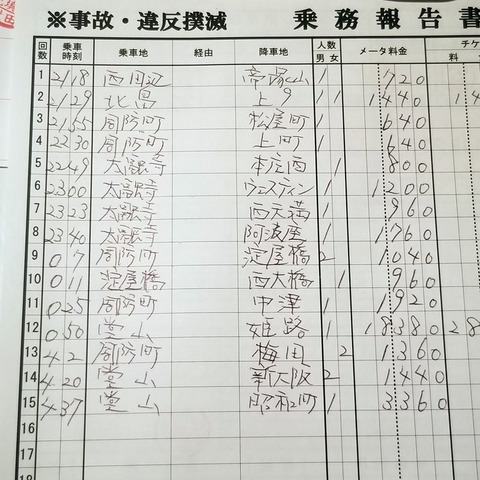 ※事故・違反撲滅 乗務報告書
回数 乗車時刻 乗車地 経由 降車地 人数 男 女 メータ料金 チケ 料
1 21 18 西田辺 帝塚山 1 1 720
2 21 29 北畠 上9 1 1 1440 14
3 21 55 周防町 松屋町 1 640
4 22 30 周防町 上町 1 640
5 22 49 太融寺 本庄西 1 800
6 23 00 太融寺 ウェスティン 1 1 1200
7 23 23 太融寺 西天満 1 960
8 23 40 太融寺 阿波座 1 1760
9 0 7 周防町 淀屋橋 2 1040
10 0 11 淀屋橋 西大橋 1 960
11 0 25 周防町 中津 1 1920
12 0 50 堂山 姫路 1 1 18380 28
13 4 2 周防町 梅田 2 1360
14 4 20 堂山 新大阪 2 1440
15 4 37 堂山 昭和町 1 3360
16
17
18